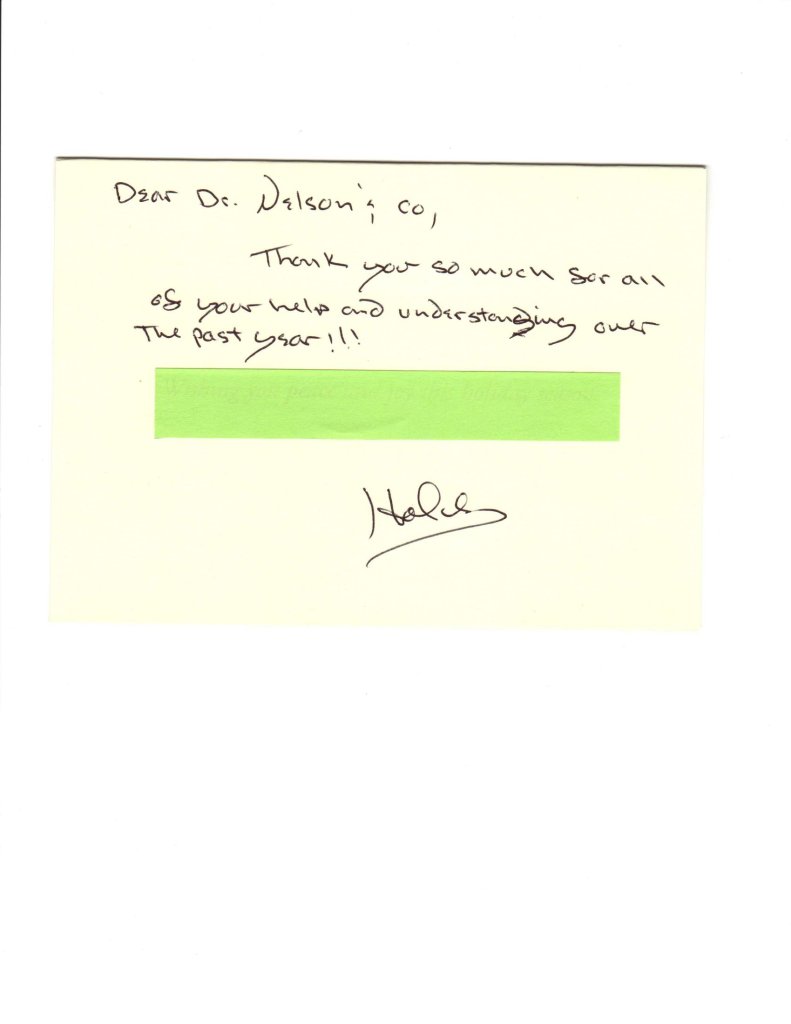 Dear Dr. Nelson & co,
Thank you so much for all
of your help and understanding over
The past year!!!
Wishing you peace and joy this holiday season.